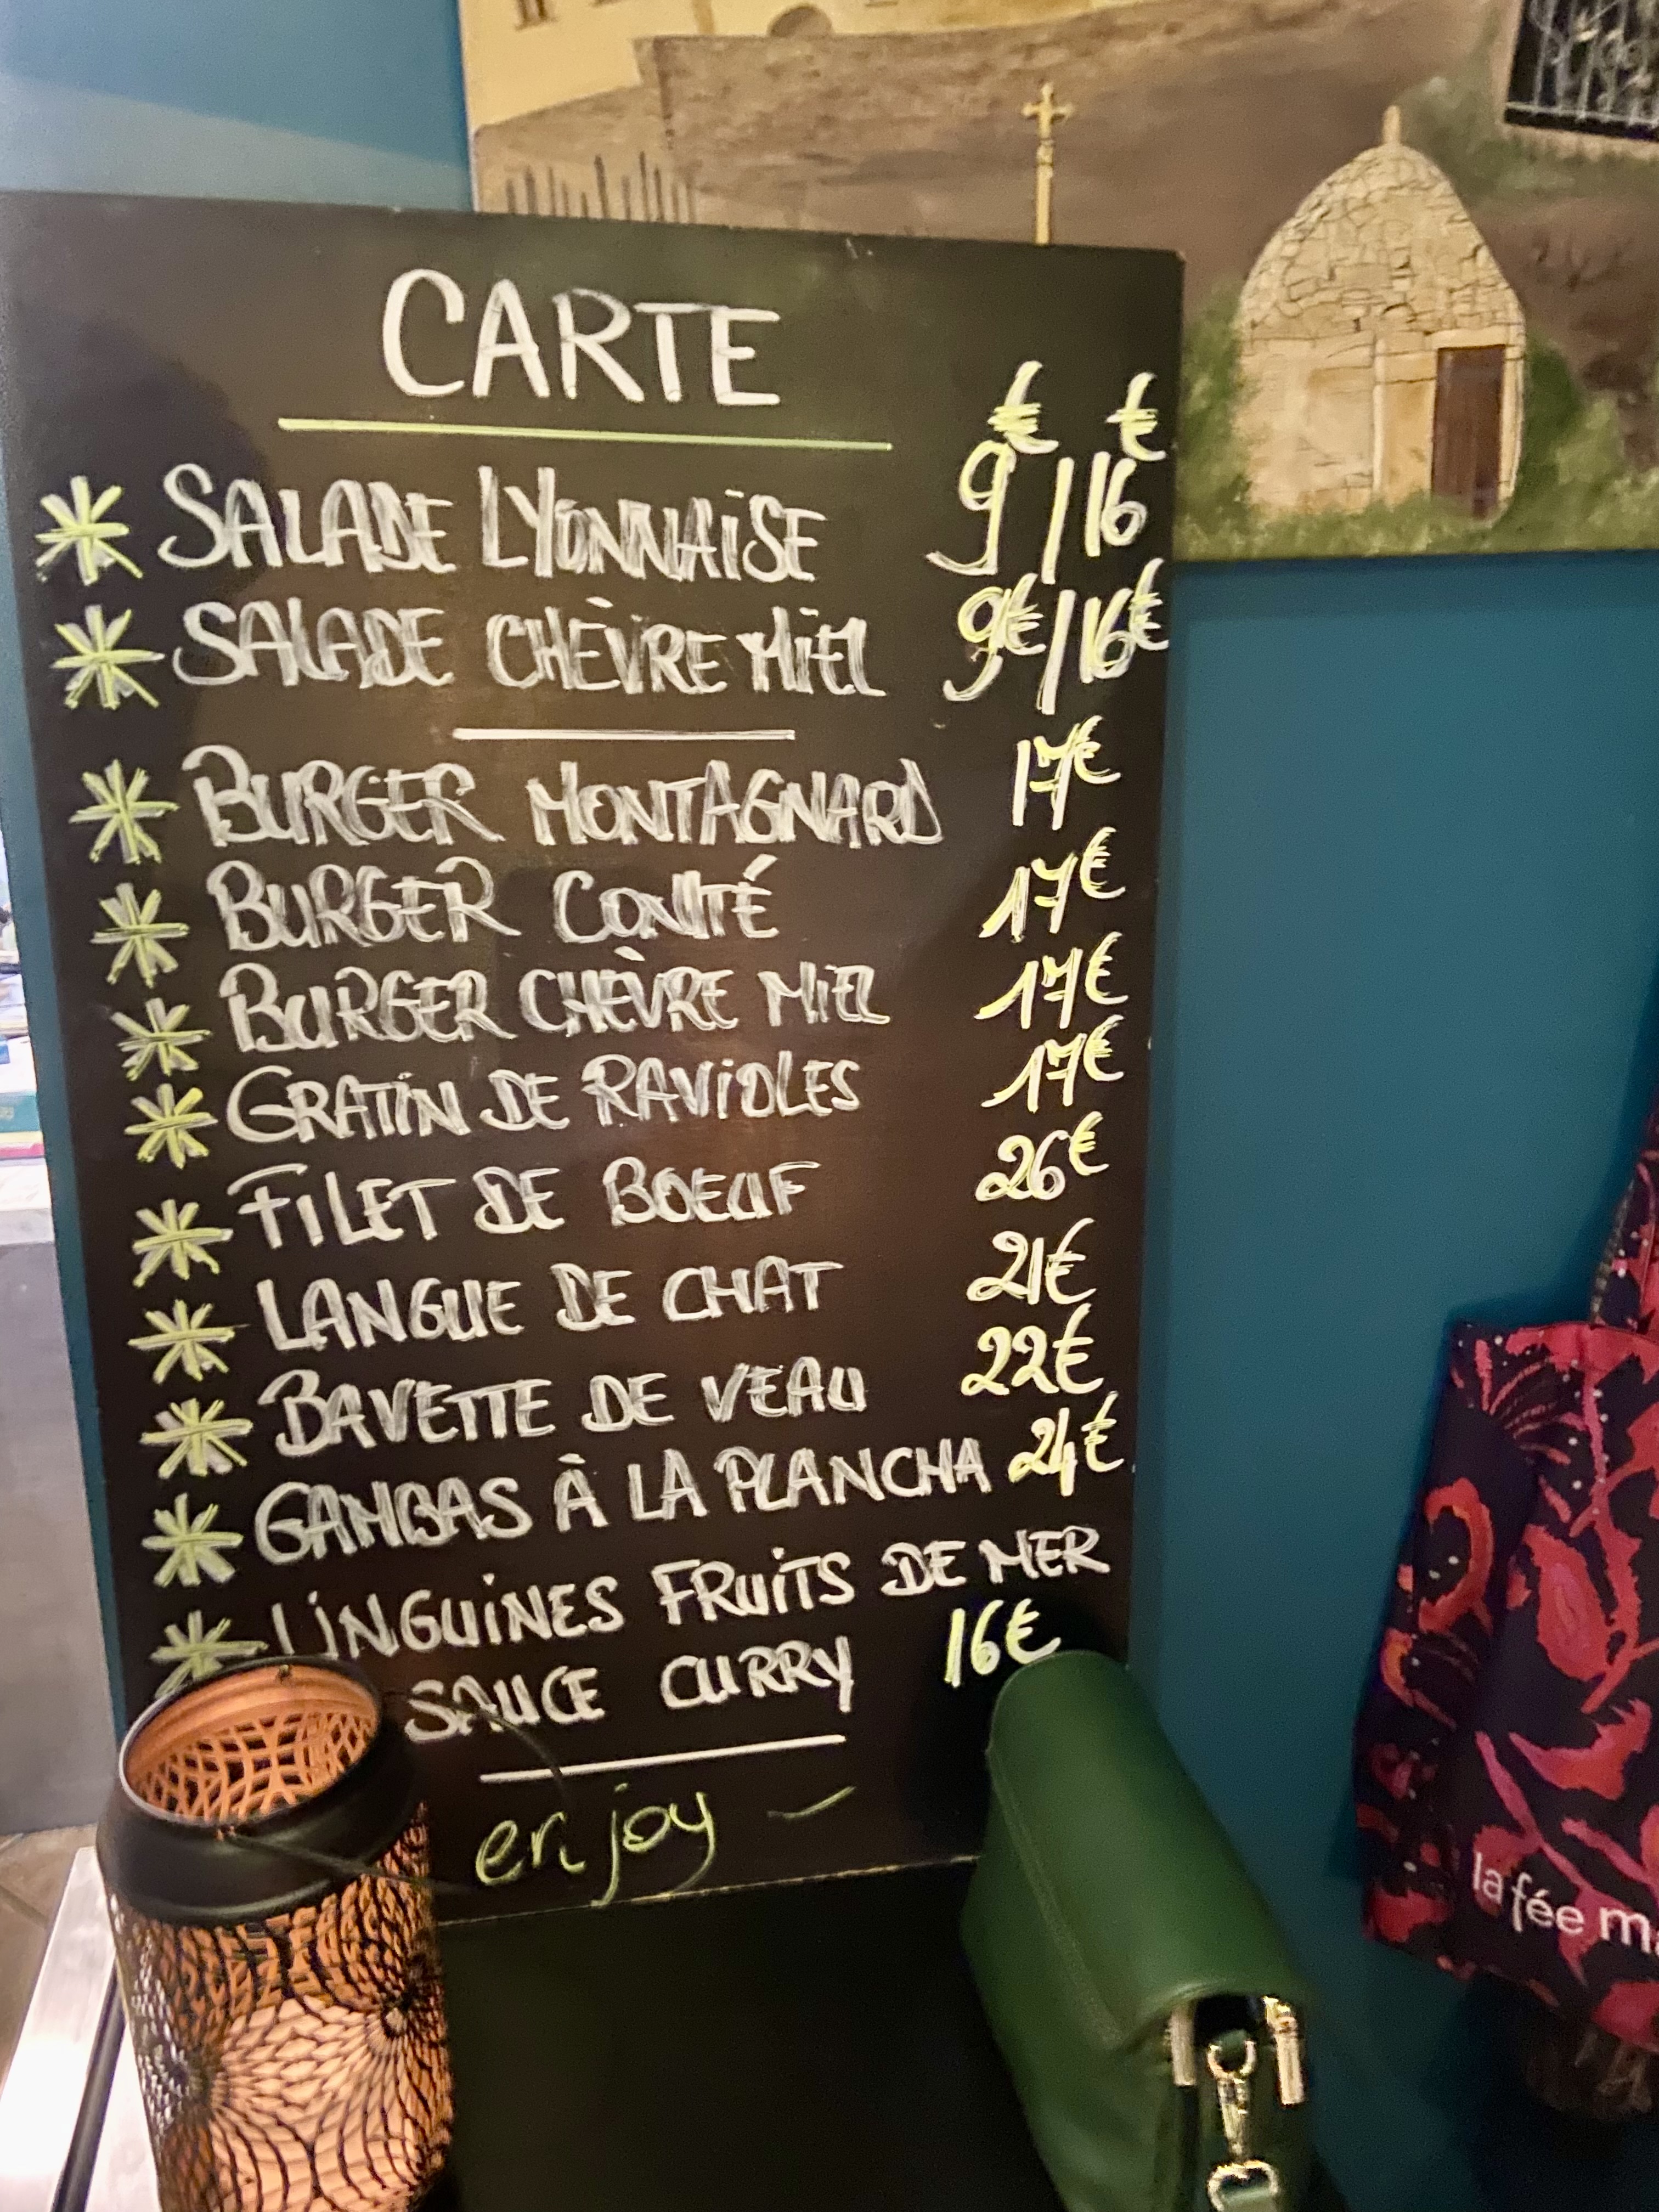 CARTE
€ €
* SALADE LYONNAISE 9 / 16
* SALADE CHÈVRE MIEL 9€ / 16€
* BURGER MONTAGNARD 17€
* BURGER COMTÉ 17€
* BURGER CHÈVRE MIEL 17€
* GRATIN DE RAVIOLES 17€
* FILET DE BOEUF 26€
* LANGUE DE CHAT 21€
* BAVETTE DE VEAU 22€
* GAMBAS À LA PLANCHA 24€
* LINGUINES FRUITS DE MER
SAUCE CURRY 16€
enjoy
la fée